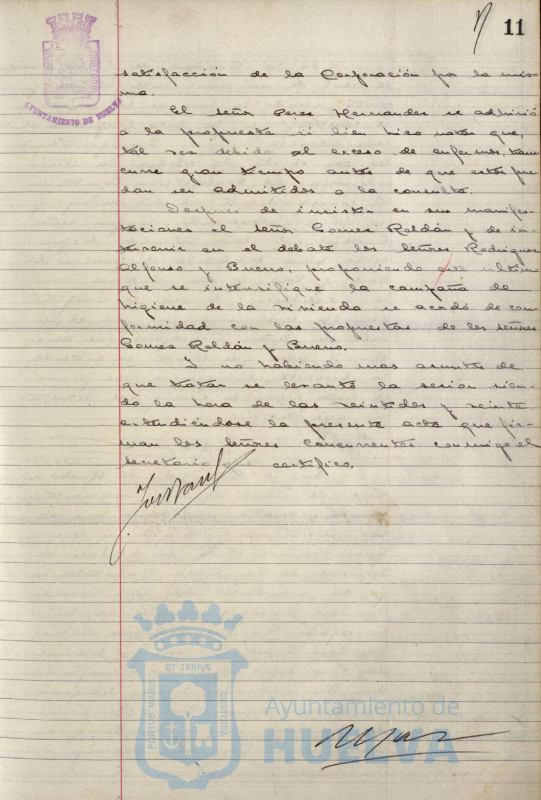 11
AYUNTAMIENTO DE HUELVA
satisfacción de la Corporación por la mis-
ma.
El señor Perez Hernandez se adhirió
a la propuesta si bien hizo notar que,
tal vez debido al exceso de enfermos, trans
curre gran tiempo antes de que estos pue
dan ser admitidos a la consulta.
Después de insistir en sus manifes-
taciones el señor Gomez Roldán y de in-
tervenir en el debate los señores Rodriguez
Alfonso y Bueno, proponiendo este ultimo
que se intensifique la campaña de
higiene de la vivienda se acordó de con
formidad con las propuestas de los señores
Gomez Roldán y Bueno.
Y no habiendo mas asuntos de
que tratar se levantó la sesión sien-
do la hora de las veintidos y veinte
extendiéndose la presente acta que fir-
man los señores concurrentes conmigo el
secretario que certifico.
ET TERRÆ
PORTUS MARIS
CUSTODIA
Ayuntamiento de
HUELVA